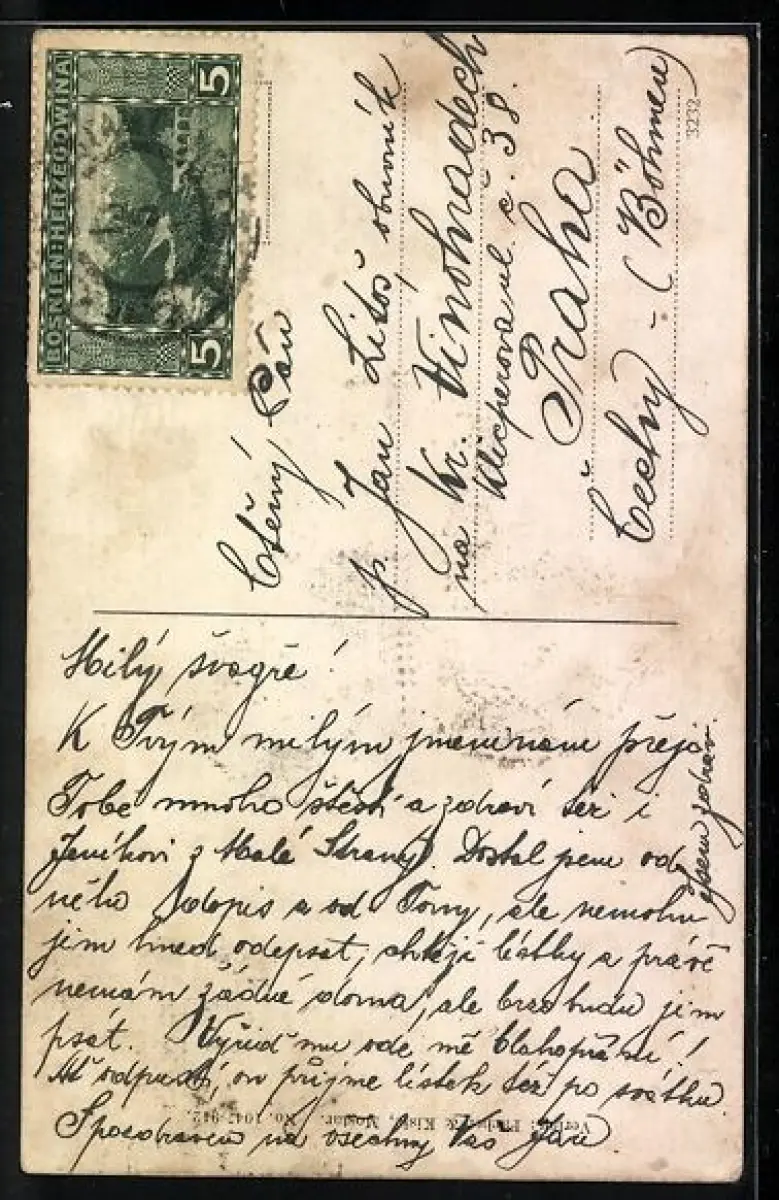 BOSNIEN-HERZEGOWINA
5
5
Ctěný Pán
p. Jan Litoš, obuvník
na Kr. Vinohradech
Klicperova ul. č. 38.
Praha
Čechy - (Böhmen)
3232
Milý švagře!
K Tvým milým jmeninám přeji
Tobě mnoho štěstí a zdraví též i
Jeníkovi z Malé Strany. Dostal jsem od
něho dopis a od Tony, ale nemohu
jim hned odepsat, chtějí lístky a právě
nemám žádné doma, ale brzo budu jim
psát. Vyřiď mu ode mě blahopřání!
Ať odpustí, on přijme lístek též po svátku.
S pozdravem na všechny Vás Jan
jsem zdráv
No. 1047 912.